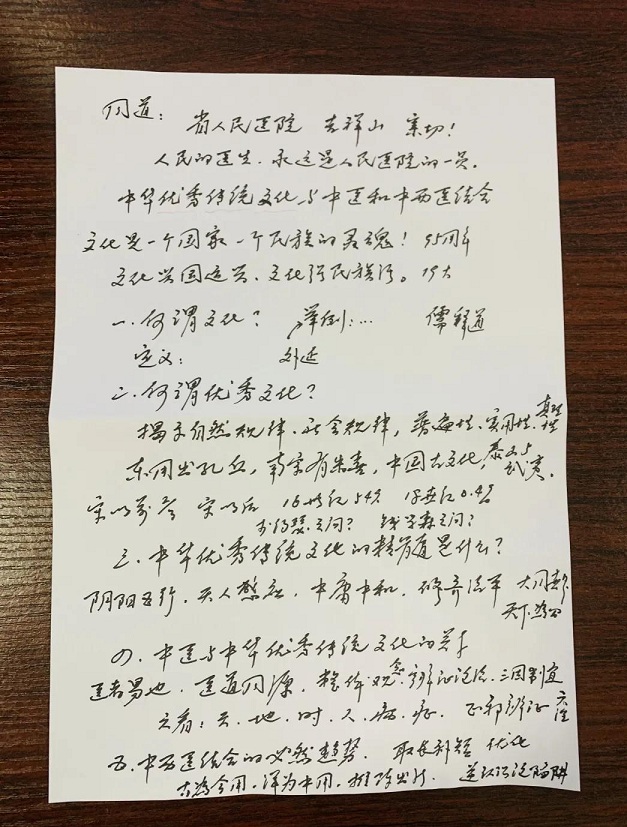 同道： 省人民医院 吉祥山 亲切！
人民的医生．永远是人民医院的一员．
中华优秀传统文化与中医和中西医结合
文化是一个国家一个民族的灵魂！ 95周年
文化兴国运兴、文化强民族强。19大
一．何谓文化？ 举例：… 儒释道
定义： 外延
二．何谓优秀文化？
揭示自然规律．社会规律，普遍性．实用性．真理性
东周出孔丘，南宋有朱熹，中国古文化，泰山与武夷．
宋以前 宋以后 16世纪54% 0.4%
李约瑟之问？ 钱学森之问？
三．中华优秀传统文化的精 是什么？
阴阳五行．天人 应．中庸中和．修齐治平 大同 天下为公
四．中医与中华优秀传统文化的关系
医者易也．医道同源．整体观念．辨证论治．三因制宜
六看：天．地．时．人．病．症． 正邪辨证
五．中西医结合的必然趋势． 取长补短 优化
古为今用．洋为中用．推陈出新． 陷阱